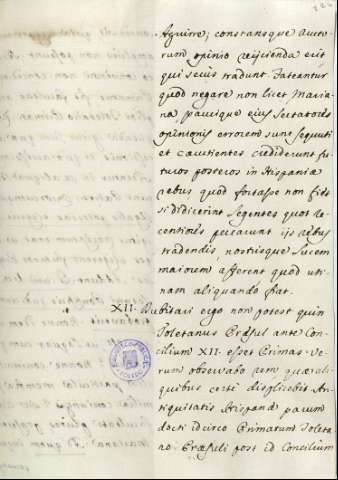 Aguirre; constansque Aucto-
rum opinio reijcienda erit
qui secus tradunt. Fateantur
quod negare non licet Maria-
na, paucique eius sectatores
opinionis errorem sunt sequuti
et cautientes crediderunt fu-
turos posteros in Hispaniæ
rebus quod fortasse non fiet
si didicerint legentes quot re-
centiores peccarunt ijs rebus
tradendis, nostrisque lucem
maiorem afferent quod uti-
nam aliquando fiat.
XII. Dubitari ergo non potest quin
Toletanus Præsul ante Con-
cilium XII. esset Primas. Ve-
rum observabo rem quæ ali-
quibus certi displicebit An-
tiquitatis Hispanæ parum
docti idcirco Primatum Toleta-
no Præsuli post id Concilium